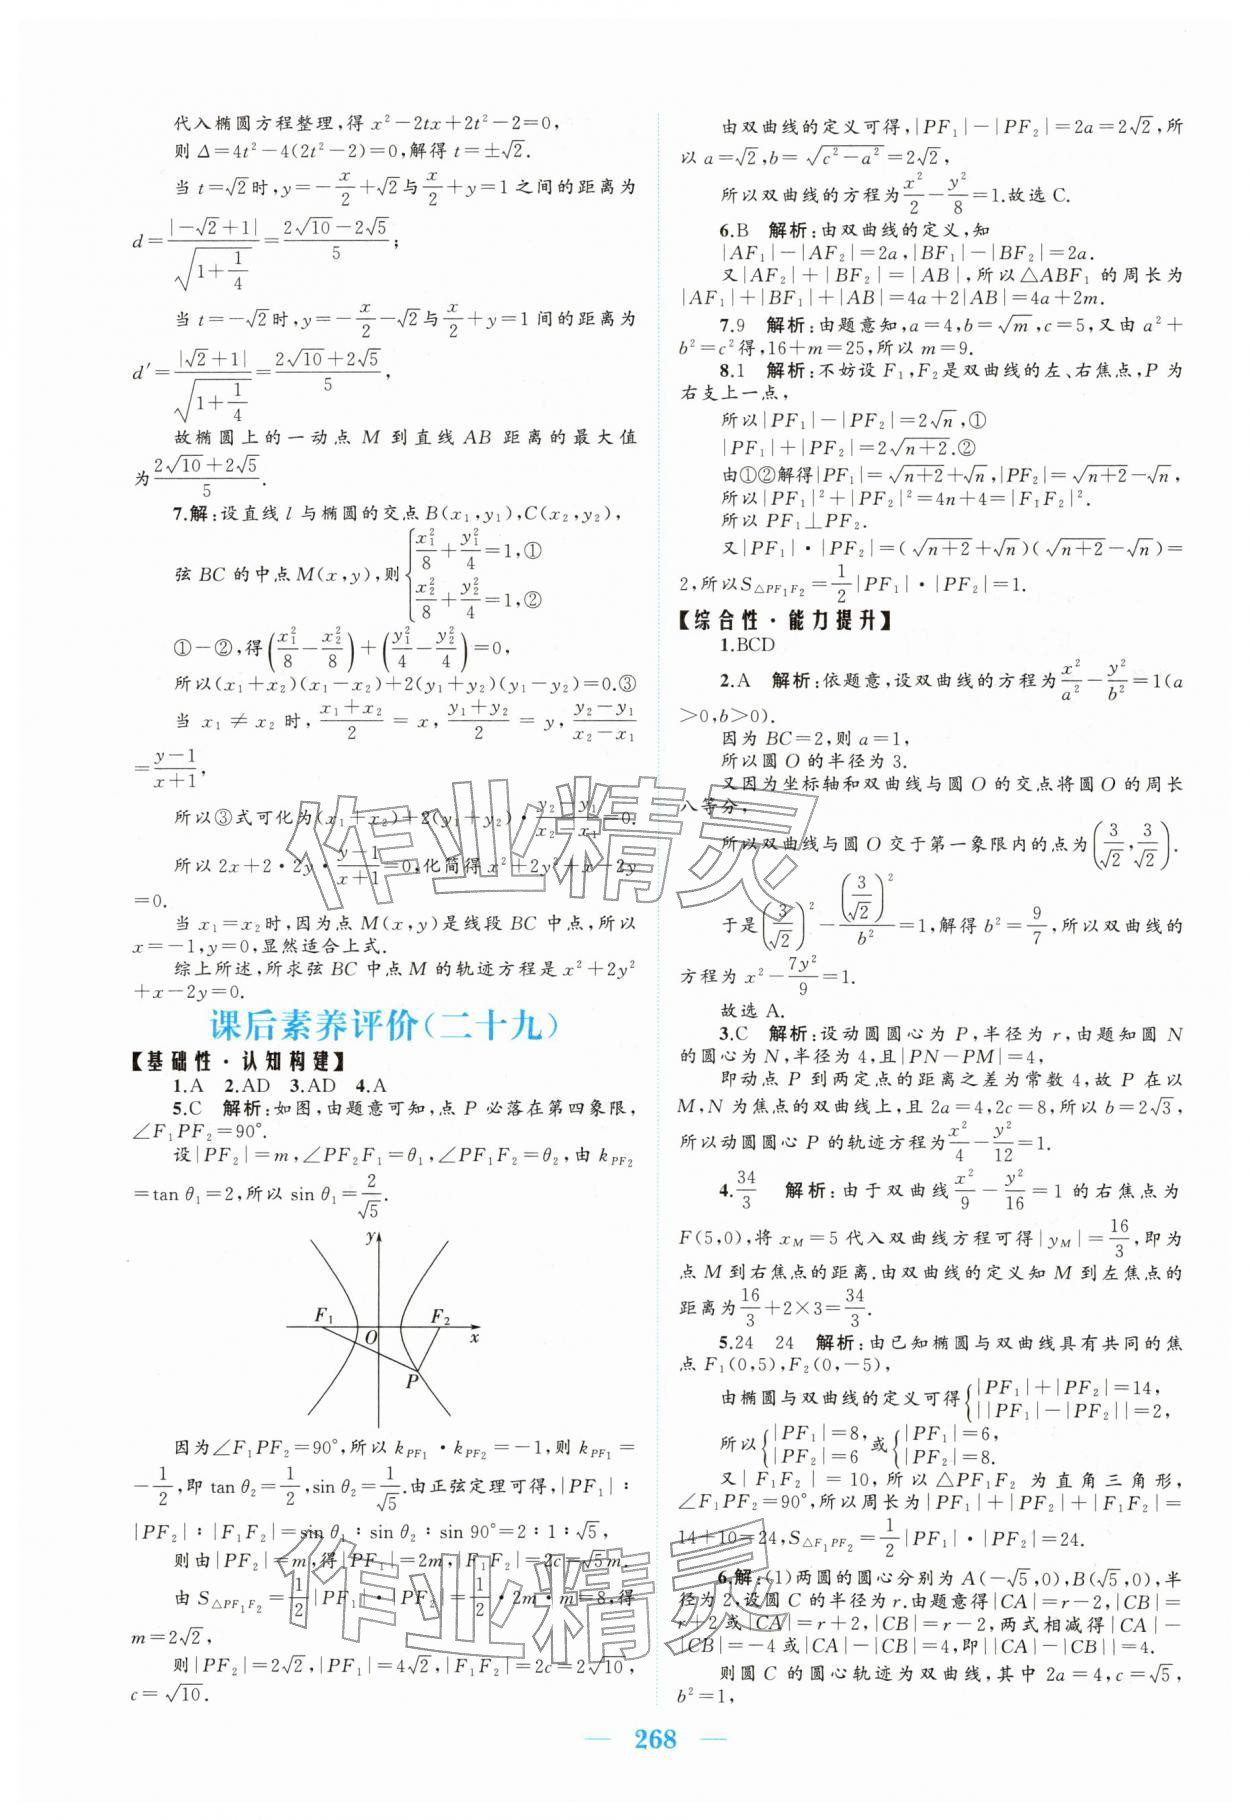 代入椭圆方程整理,得 x²-2tx+2t²-2=0,
则 Δ=4t²-4(2t²-2)=0,解得 t=±√2.
当 t=√2时,y=-x/2+√2与x/2+y=1之间的距离为
d=|-√2+1|/√(1+1/4)=(2√10-2√5)/5;
当 t=-√2时,y=-x/2-√2与x/2+y=1间的距离为
d′=|√2+1|/√(1+1/4)=(2√10+2√5)/5,
故椭圆上的一动点 M 到直线 AB 距离的最大值
为(2√10+2√5)/5.
7.解:设直线 l 与椭圆的交点 B(x₁,y₁),C(x₂,y₂),
弦 BC 的中点 M(x,y),则{x₁²/8+y₁²/4=1,①
x₂²/8+y₂²/4=1,②
①-②,得(x₁²/8-x₂²/8)+(y₁²/4-y₂²/4)=0,
所以(x₁+x₂)(x₁-x₂)+2(y₁+y₂)(y₁-y₂)=0.③
当 x₁≠x₂ 时,(x₁+x₂)/2=x,(y₁+y₂)/2=y,(y₂-y₁)/(x₂-x₁)
=(y-1)/(x+1),
所以③式可化为(x₁+x₂)+2(y₁+y₂)·(y₂-y₁)/(x₂-x₁)=0.
所以 2x+2·2y·(y-1)/(x+1)=0,化简得 x²+2y²+x-2y
=0.
当 x₁=x₂时,因为点 M(x,y)是线段 BC 中点,所以
x=-1,y=0,显然适合上式.
综上所述,所求弦 BC 中点 M 的轨迹方程是 x²+2y²
+x-2y=0.
课后素养评价(二十九)
【基础性·认知构建】
1.A 2.AD 3.AD 4.A
5.C 解析:如图,由题意可知,点 P 必落在第四象限,
∠F₁PF₂=90°.
设|PF₂|=m,∠PF₂F₁=θ₁,∠PF₁F₂=θ₂,由 k_{PF₂}
=tan θ₁=2,所以 sin θ₁=2/√5.
y
F₁ O F₂ x
P
因为∠F₁PF₂=90°,所以 k_{PF₁}·k_{PF₂}=-1,则 k_{PF₁}=
-1/2,即 tan θ₂=1/2,sin θ₂=1/√5.由正弦定理可得,|PF₁|:
|PF₂|:|F₁F₂|=sin θ₁:sin θ₂:sin 90°=2:1:√5,
则由|PF₂|=m,得|PF₁|=2m,|F₁F₂|=2c=√5m.
由 S_{△PF₁F₂}=1/2|PF₁|·|PF₂|=1/2·2m·m=8,得
m=2√2,
则|PF₂|=2√2,|PF₁|=4√2,|F₁F₂|=2c=2√10,
c=√10.
由双曲线的定义可得,|PF₁|-|PF₂|=2a=2√2,所
以 a=√2,b=√(c²-a²)=2√2,
所以双曲线的方程为x²/2-y²/8=1.故选 C.
6.B 解析:由双曲线的定义,知
|AF₁|-|AF₂|=2a,|BF₁|-|BF₂|=2a.
又|AF₂|+|BF₂|=|AB|,所以△ABF₁ 的周长为
|AF₁|+|BF₁|+|AB|=4a+2|AB|=4a+2m.
7.9 解析:由题意知,a=4,b=√m,c=5,又由 a²+
b²=c²得,16+m=25,所以 m=9.
8.1 解析:不妨设 F₁,F₂是双曲线的左、右焦点,P 为
右支上一点,
所以|PF₁|-|PF₂|=2√n,①
|PF₁|+|PF₂|=2√(n+2).②
由①②解得|PF₁|=√(n+2)+√n,|PF₂|=√(n+2)-√n,
所以|PF₁|²+|PF₂|²=4n+4=|F₁F₂|².
所以 PF₁⊥PF₂.
又|PF₁|·|PF₂|=(√(n+2)+√n)(√(n+2)-√n)=
2,所以S_{△PF₁F₂}=1/2|PF₁|·|PF₂|=1.
【综合性·能力提升】
1.BCD
2.A 解析:依题意,设双曲线的方程为x²/a²-y²/b²=1(a
>0,b>0).
因为 BC=2,则 a=1,
所以圆 O 的半径为 3.
又因为坐标轴和双曲线与圆 O 的交点将圆 O 的周长
八等分,
所以双曲线与圆 O 交于第一象限内的点为(3/√2,3/√2).
于是(3/√2)²-(3/√2)²/b²=1,解得 b²=9/7,所以双曲线的
方程为 x²-7y²/9=1.
故选 A.
3.C 解析:设动圆圆心为 P,半径为 r,由题知圆 N
的圆心为 N,半径为 4,且|PN-PM|=4,
即动点 P 到两定点的距离之差为常数 4,故 P 在以
M,N 为焦点的双曲线上,且 2a=4,2c=8,所以 b=2√3,
所以动圆圆心 P 的轨迹方程为x²/4-y²/12=1.
4.34/3 解析:由于双曲线x²/9-y²/16=1 的右焦点为
F(5,0),将 x_M=5 代入双曲线方程可得|y_M|=16/3,即为
点 M 到右焦点的距离.由双曲线的定义知 M 到左焦点的
距离为16/3+2×3=34/3.
5.24 24 解析:由已知椭圆与双曲线具有共同的焦
点 F₁(0,5),F₂(0,-5),
由椭圆与双曲线的定义可得{|PF₁|+|PF₂|=14,
||PF₁|-|PF₂||=2,
所以{|PF₁|=8, |PF₂|=6 或{|PF₁|=6, |PF₂|=8.
又|F₁F₂|=10,所以△PF₁F₂ 为直角三角形,
∠F₁PF₂=90°,所以周长为|PF₁|+|PF₂|+|F₁F₂|=
14+10=24,S_{△F₁PF₂}=1/2|PF₁|·|PF₂|=24.
6.解:(1)两圆的圆心分别为 A(-√5,0),B(√5,0),半
径为 2,设圆 C 的半径为 r.由题意得|CA|=r-2,|CB|=
r+2或|CA|=r+2,|CB|=r-2,两式相减得|CA|-
|CB|=-4 或|CA|-|CB|=4,即||CA|-|CB||=4.
则圆 C 的圆心轨迹为双曲线,其中 2a=4,c=√5,
b²=1,
268
作业精灵
作业精灵